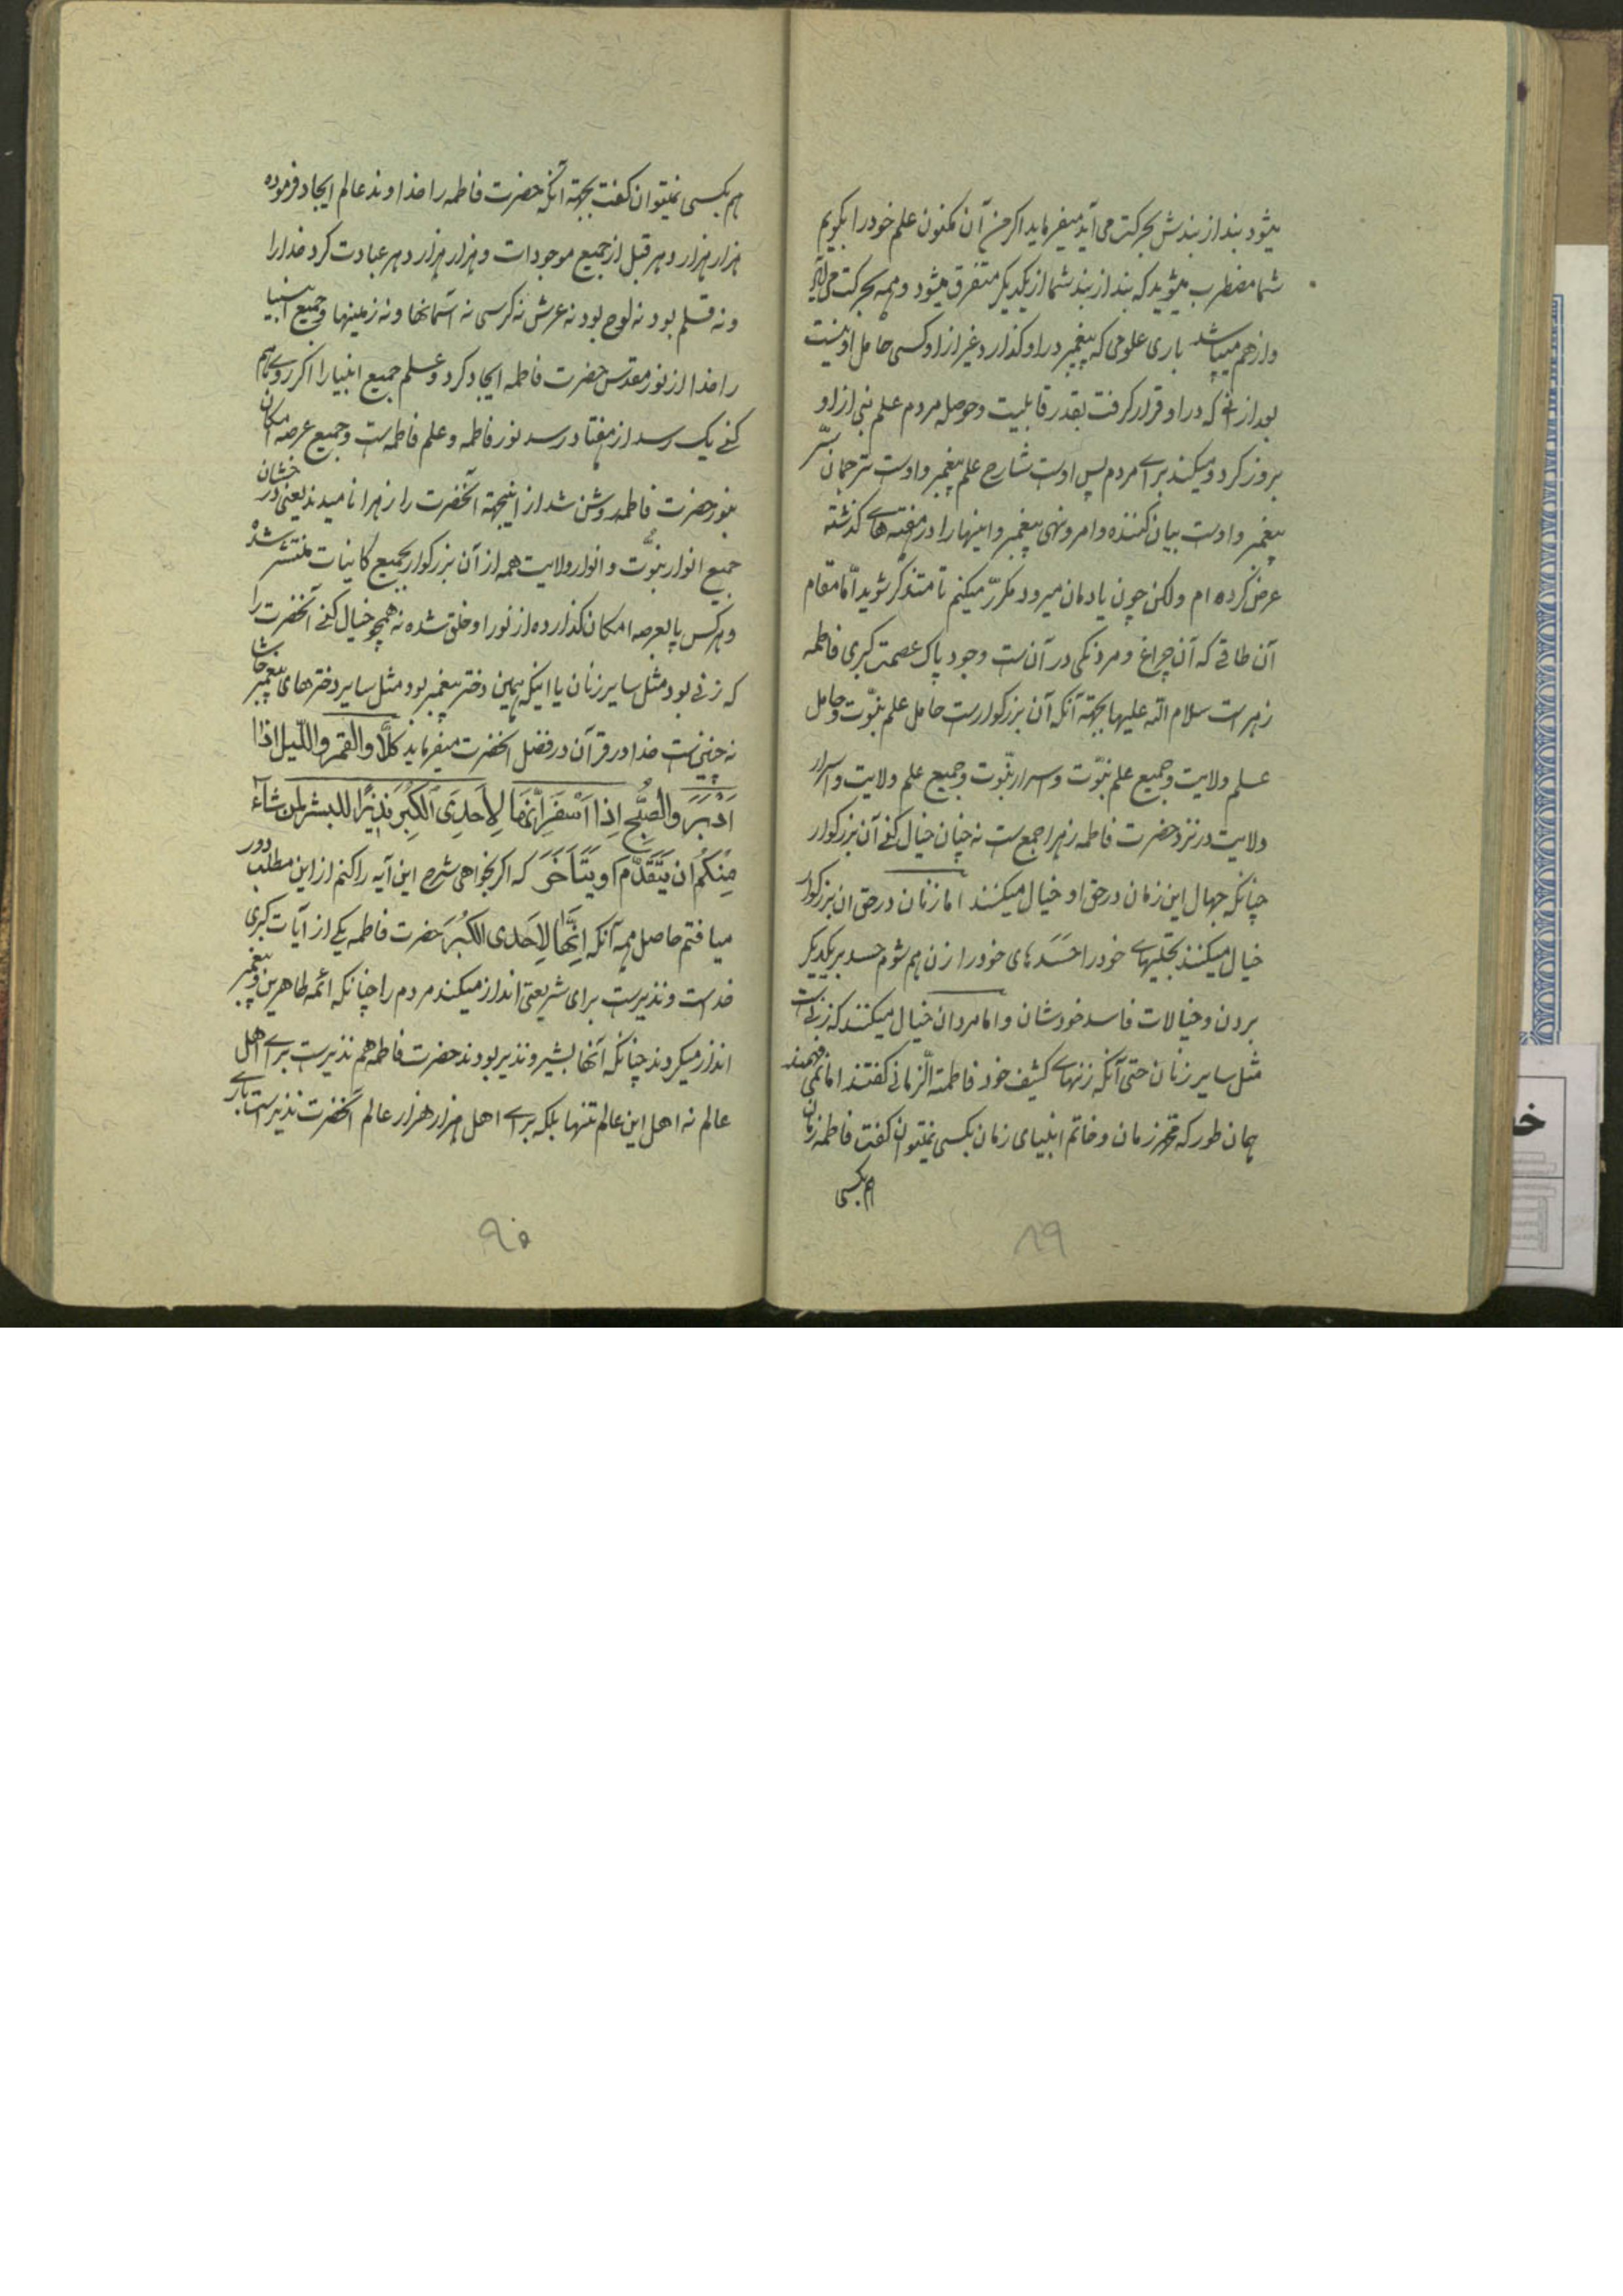 میشود بند از بندش بحرکت می آید میفرماید اکر من آن مکنون علم خود را بکویم
شما مضطرب میشوید که بند از بند شما از یکدیکر متفرق میشود و همه بحرکت می آید
و از هم میپاشد باری علومی که پیغمبر در او کذارد و غیر از او کسی حامل او نیست
بعد از آنی که در او قرار کرفت بقدر قابلیت و حوصله مردم علم نبی از او
بروز کرد و میکند برای مردم پس اوست شارح علم پیغمبر و اوست ترجمان سرّ
پیغمبر و اوست بیان کننده و امر و نهی پیغمبر و اینها را در هفته های کذشته
عرض کرده ام ولکن چون یادمان میرود مکرّر میکنم تا متذکر شوید امّا مقام
آن طاقی که آن چراغ و مردنکی در آن ست وجود پاک عصمت کبری فاطمه
زهراست سلام الله علیها بجهة آنکه آن بزرکوارست حامل علم نبوّت و حامل
علم ولایت و جمیع علم نبوّت و اسرار نبّوت و جمیع علم ولایت و اسرار
ولایت در نزد حضرت فاطمه زهرا جمع ست نه چنان خیال کنی آن بزرکوار
چنانکه جهال این زمان در حق او خیال میکنند اما زنان در حق ان بزرکوار
خیال میکنند بخلیهای خود را حَسَدهای خود را زن هم شوم حسد بر یکدیکر
بردن و خیالات فاسد خودشان و اما مردان خیال میکنند که زنی ست
مثل سایر زنان حتی آنکه زنهای کثیف خود فاطمة الزمانی کفتند اما نمی فهمند
همان طور که محمد زمان و خاتم انبیای زمان بکسی نمیتوان کفت فاطمه زمان
هم بکسی
۸۹
هم بکسی نمیتوان کفت بجهة آنکه حضرت فاطمه را خداوند عالم ایجاد فرموده
هزار هزار دهر قبل از جمیع موجودات و هزار هزار دهر عبادت کرد خدا را
و نه قلم بود نه لوح بود نه عرش نه کرسی نه آسمانها و نه زمینها و جمیع انبیا
را خدا از نور مقدس حضرت فاطمه ایجاد کرد و علم جمیع انبیا را اکر روی هم
کنی یک رسد از هفتاد رسد نور فاطمه و علم فاطمه ست و جمیع عرصه امکان
بنور حضرت فاطمه روشن شد از اینجهة آنحضرت را زهرا نامیدند یعنی درخشان
جمیع انوار نبوّت و انوار ولایت همه از آن بزرکوار بجمیع کاینات منتشر شد
و هر کس پا بعرصه امکان کذارده از نور او خلق شده نه همچو خیال کنی آنحضرت را
که زنی بود مثل سایر زنان یا اینکه همین دختر پیغمبر بود مثل سایر دخترهای پیغمبر حاشا
نه چنین ست خدا در قرآن در فضل آنحضرت میفرماید کلّا والقمر واللّیل اذا
اَدْبَرَ والصُّبْح اِذا اَسْفَرَ اِنّهَا لِاَحدِیَ الکُبَر نَذیرًا للبشر لمن شاء
مِنکُم اَن یَتَقَدَّم او یَتَاَخَّرَ که اکر بخواهی شرح این آیه را کنم از این مطلب دور
میافتم حاصل همه آنکه اِنَّهَا لِاَحدی الکُبَر حضرت فاطمه یکی از آیات کبری
خداست و نذیرست برای شریعتی انذار میکند مردم را چنانکه ائمه طاهرین و پیغمبر
انذار میکردند چنانکه آنها بشیر و نذیر بودند حضرت فاطمه هم نذیرست برای اهل
عالم نه اهل این عالم تنها بلکه برای اهل هزار هزار عالم آنحضرت نذیرست باری
۹۰